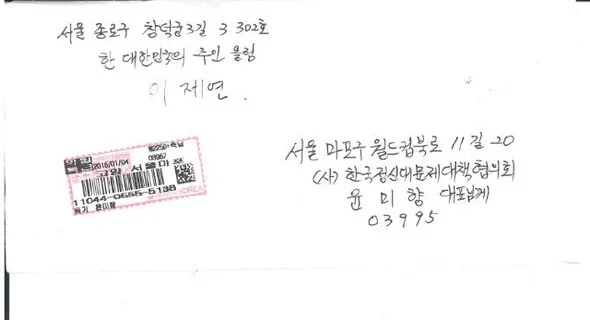 서울 종로구 창덕궁3길 3 302호
한 대한민국의 주인 올림
이 제 연
2016/01/04
고양 서울마
11044-0555-5138
등기 윤미향
KOREA
서울 마포구 월드컵북로 11길 20
(사) 한국정신대문제대책협의회
윤 미 향 대표님께
03995